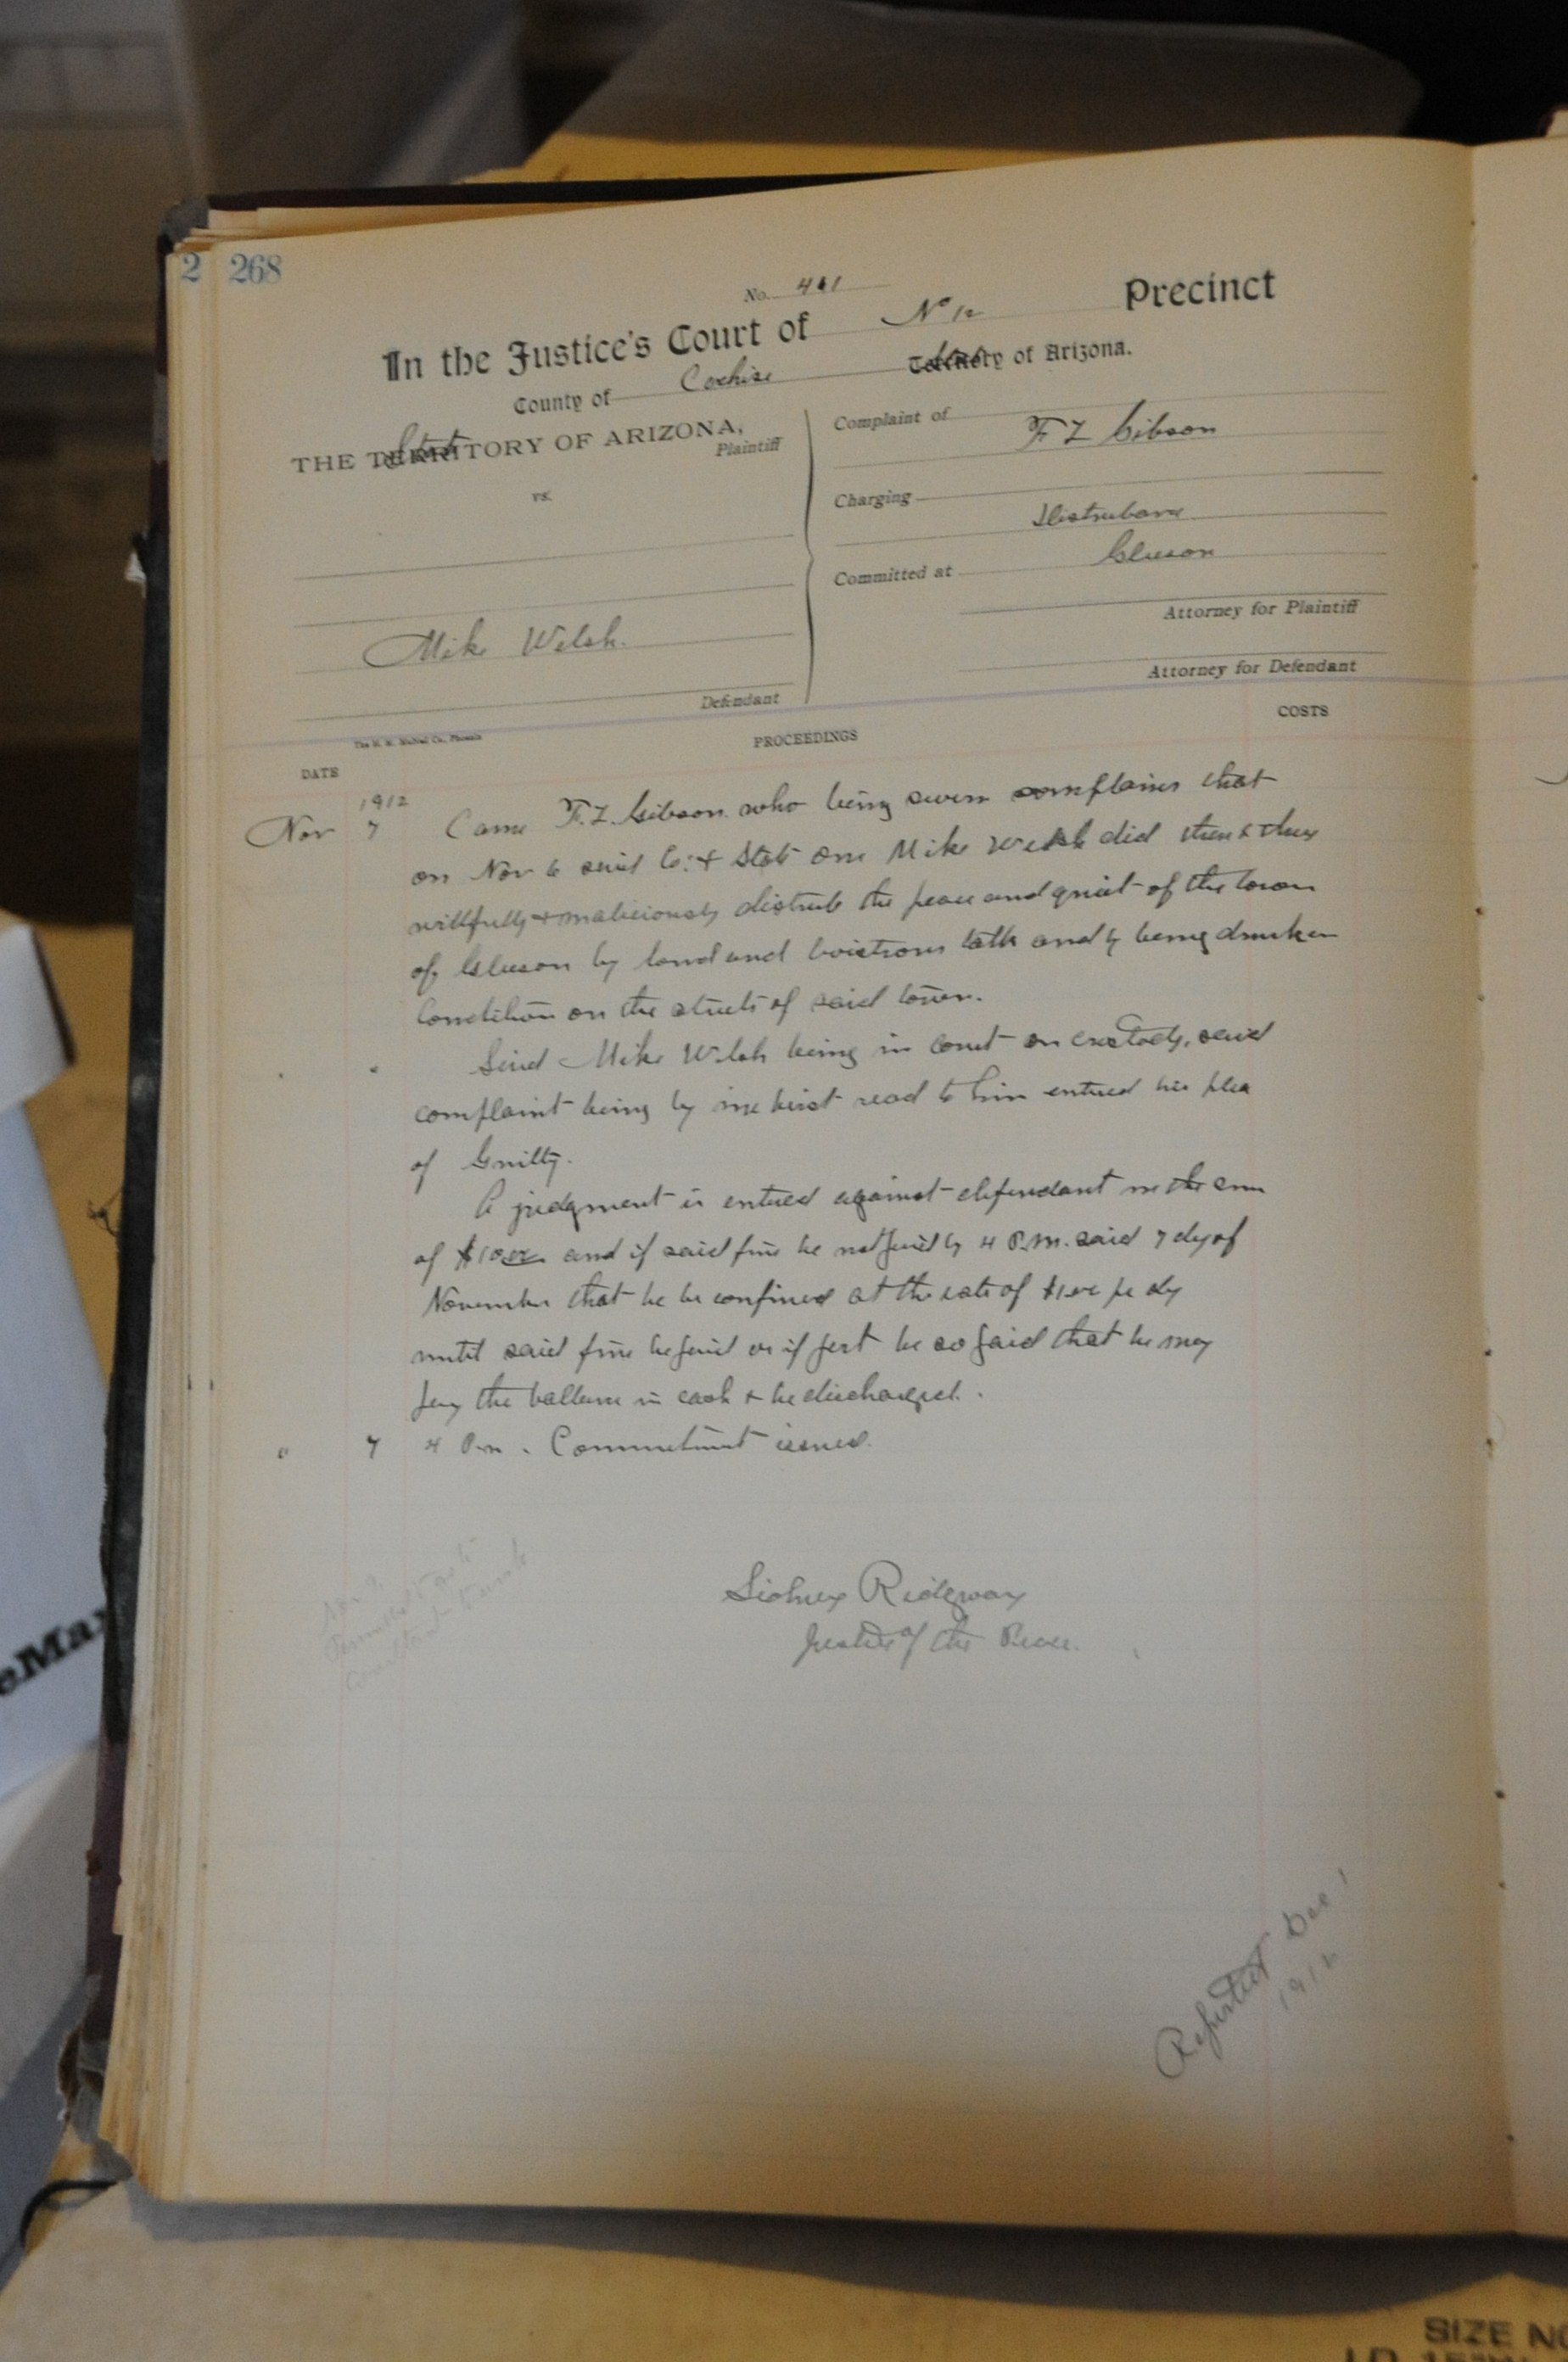 2 268
No. 461
In the Justice's Court of No 12 Precinct
County of Cochise State Territory of Arizona.
State
THE TERRITORY OF ARIZONA,
Plaintiff
vs.
Mike Welsh.
Defendant
Complaint of F Z Gibson
Charging
Distrubance
Committed at Gleeson
Attorney for Plaintiff
Attorney for Defendant
DATE
PROCEEDINGS
COSTS
1912
Nov 7 Came F.Z. Gibson who being sworn complaines that
on Nov 6 said Co. & State one Mike Welsh did then & there
willfully & maliciously distrub the peace and quiet of the town
of Gleeson by loud and boistrous talk and by being drunken
Condition on the streets of said town.
Said Mike Welsh being in court in custody, said
complaint being by me first read to him entered his plea
of Guilty.
A judgment is entered against defendant in the sum
of $10.00 and if said fine be not paid by 4 P.M. said 7 day of
November that he be confined at the rate of $1.00 pe dy
until said fine be paid or if part be so paid that he may
pay the ballance in cash & be discharged.
" 7 4 P.m. Commetment issued.
Sidney Ridgway
Justice of the Peace.
Nov 9
Permitted to go to
Courtland to work
Reported Dec 1
1912
eMax
SIZE NO